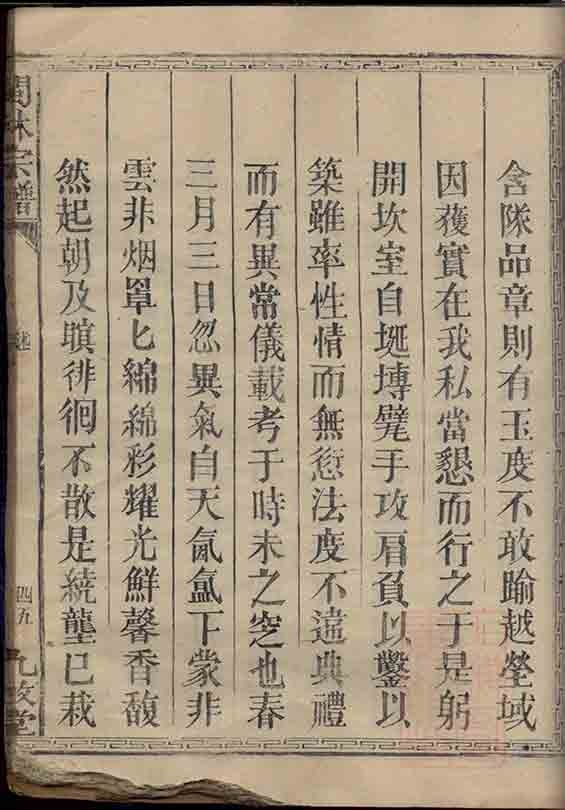 含隊品章則有玉度不敢踰越塋域
因穫實在我私當懇而行之于是躬
開坎室自埏摶甓手攻肩負以鑿以
築雖率性情而無愆法度不違典禮
而有異常儀載考于時未之空也春
三月三日忽異氣自天氤氳下蒙非
雲非烟罩匕綿綿彩耀光鮮馨香馥
然起朝及瞋徘徊不散是繞壟已栽
林宗譜
述
四五
九牧堂